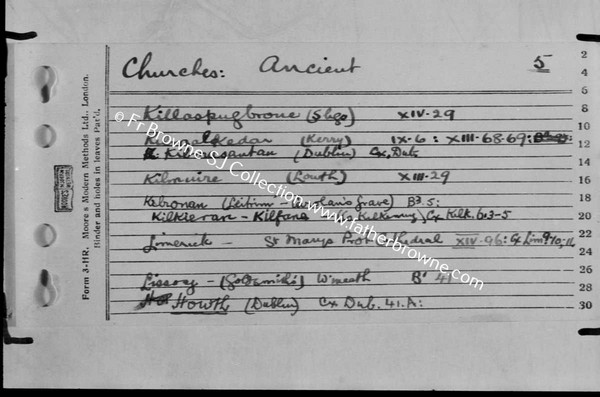 Churches: Ancient 5
Killaspugbrone (Sligo) XIV-29
Kilmalkedar (Kerry) IX-6 : XIII-68-69:
(Dublin) Cx, Dub.
(Louth) XIII-29
Kilronan (Leitrim - grave) B3.5:
Kilkieran - Kilfane Kilkenny) Cx Kilk. 6:3-5
Limerick - St Marys Prot. XIV-96: Cx Lim 9,10,11,
Lissoy - (Goldsmith's) W'meath 41
Howth (Dublin) Cx Dub. 41.A:
2
4
6
8
10
12
14
16
18
20
22
24
26
28
30
Form 3-HR. Moore's Modern Methods Ltd., London.
Binder and holes in leaves Pat'd.
© Fr Browne SJ Collection www.fatherbrowne.com